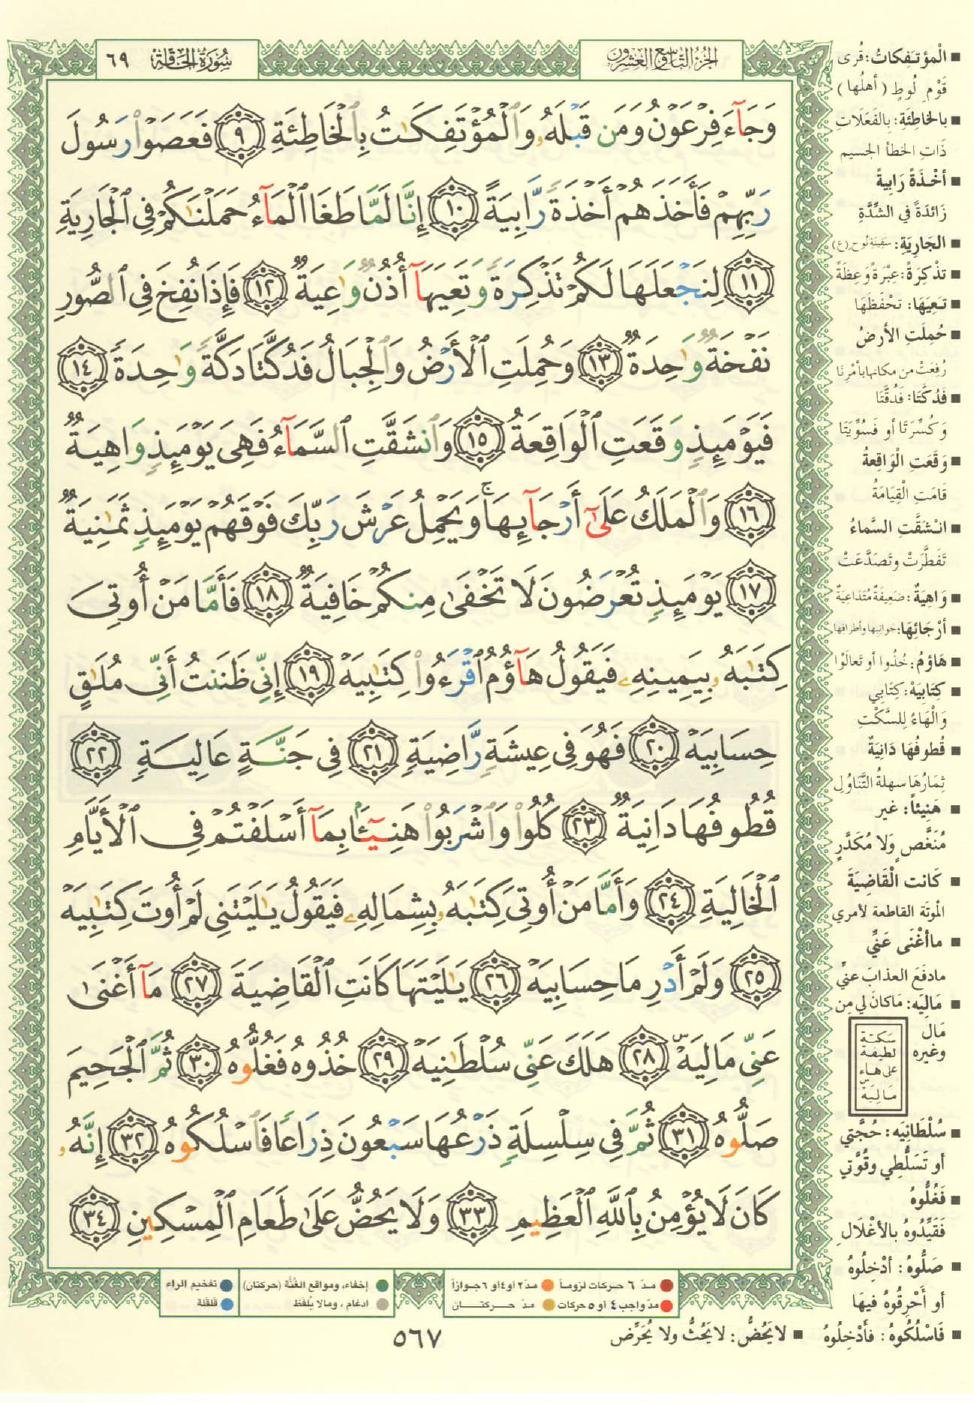 الجزء التاسع والعشرون
سُورَةُ الحَاقَّة ٦٩
وَجَآءَ فِرْعَوْنُ وَمَن قَبْلَهُۥ وَٱلْمُؤْتَفِكَـٰتُ بِٱلْخَاطِئَةِ ٩ فَعَصَوْا۟ رَسُولَ
رَبِّهِمْ فَأَخَذَهُمْ أَخْذَةً رَّابِيَةً ١٠ إِنَّا لَمَّا طَغَا ٱلْمَآءُ حَمَلْنَـٰكُمْ فِى ٱلْجَارِيَةِ
١١ لِنَجْعَلَهَا لَكُمْ تَذْكِرَةً وَتَعِيَهَآ أُذُنٌ وَٰعِيَةٌ ١٢ فَإِذَا نُفِخَ فِى ٱلصُّورِ
نَفْخَةٌ وَٰحِدَةٌ ١٣ وَحُمِلَتِ ٱلْأَرْضُ وَٱلْجِبَالُ فَدُكَّتَا دَكَّةً وَٰحِدَةً ١٤
فَيَوْمَئِذٍ وَقَعَتِ ٱلْوَاقِعَةُ ١٥ وَٱنشَقَّتِ ٱلسَّمَآءُ فَهِىَ يَوْمَئِذٍ وَاهِيَةٌ
١٦ وَٱلْمَلَكُ عَلَىٰٓ أَرْجَآئِهَا ۚ وَيَحْمِلُ عَرْشَ رَبِّكَ فَوْقَهُمْ يَوْمَئِذٍ ثَمَـٰنِيَةٌ
١٧ يَوْمَئِذٍ تُعْرَضُونَ لَا تَخْفَىٰ مِنكُمْ خَافِيَةٌ ١٨ فَأَمَّا مَنْ أُوتِىَ
كِتَـٰبَهُۥ بِيَمِينِهِۦ فَيَقُولُ هَآؤُمُ ٱقْرَءُوا۟ كِتَـٰبِيَهْ ١٩ إِنِّى ظَنَنتُ أَنِّى مُلَـٰقٍ
حِسَابِيَهْ ٢٠ فَهُوَ فِى عِيشَةٍ رَّاضِيَةٍ ٢١ فِى جَنَّةٍ عَالِيَةٍ ٢٢
قُطُوفُهَا دَانِيَةٌ ٢٣ كُلُوا۟ وَٱشْرَبُوا۟ هَنِيٓـًٔۢا بِمَآ أَسْلَفْتُمْ فِى ٱلْأَيَّامِ
ٱلْخَالِيَةِ ٢٤ وَأَمَّا مَنْ أُوتِىَ كِتَـٰبَهُۥ بِشِمَالِهِۦ فَيَقُولُ يَـٰلَيْتَنِى لَمْ أُوتَ كِتَـٰبِيَهْ
٢٥ وَلَمْ أَدْرِ مَا حِسَابِيَهْ ٢٦ يَـٰلَيْتَهَا كَانَتِ ٱلْقَاضِيَةَ ٢٧ مَآ أَغْنَىٰ
عَنِّى مَالِيَهْ ۜ ٢٨ هَلَكَ عَنِّى سُلْطَـٰنِيَهْ ٢٩ خُذُوهُ فَغُلُّوهُ ٣٠ ثُمَّ ٱلْجَحِيمَ
صَلُّوهُ ٣١ ثُمَّ فِى سِلْسِلَةٍ ذَرْعُهَا سَبْعُونَ ذِرَاعًا فَٱسْلُكُوهُ ٣٢ إِنَّهُۥ
كَانَ لَا يُؤْمِنُ بِٱللَّهِ ٱلْعَظِيمِ ٣٣ وَلَا يَحُضُّ عَلَىٰ طَعَامِ ٱلْمِسْكِينِ ٣٤
■ الْمُؤتَفِكاتُ: قُرى
قَوْمِ لُوطٍ (أهلُها)
■ بالخاطِئَة: بالفَعَلات
ذَاتِ الخطأ الجسيم
■ أخْذَةً رَابِيةً
زَائدَةً في الشِّدَّةِ
■ الجَارِيَةِ: سَفِينَةِ نُوح (ع)
■ تذْكِرَةً: عِبْرَةً وَعِظَةً
■ تَعِيَهَا: تحْفَظَها
■ حُمِلَتِ الأرضُ
رُفِعَتْ من مكانها بأمْرِنَا
■ فَدُكَّتَا: فَدُقَّتَا
وَكُسِّرَتَا أو فَسُوِّيَتَا
■ وَقَعَتِ الْوَاقِعةُ
قَامَتِ الْقِيَامَةُ
■ انْشقَّتِ السَّماءُ
تَفَطَّرَتْ وَتَصَدَّعَتْ
■ وَاهِيَةٌ: ضَعِيفَةٌ مُتَدَاعِيَةٌ
■ أرْجَائِهَا: جَوَانِبِها وأطْرَافِها
■ هَاؤُمُ: خُذُوا أو تَعالَوْا
■ كِتابيَهْ: كِتَابِي
وَالْهَاءُ لِلسَّكْتِ
■ قُطوفُهَا دَانِيَةٌ
ثِمَارُهَا سهلةُ التَّنَاوُلِ
■ هَنِيئاً: غير
مُنَغَّصٍ وَلا مُكَدَّرٍ
■ كَانت الْقَاضِيَةَ
الموتَة القاطعة لأمري
■ ما أغْنَى عَنِّي
ما دفَع العذابَ عنِّي
■ مَالِيَه: مَا كانَ لي مِن
مَال وغيره
سَكتة
لطيفة
على هاء
مَالِيَهْ
■ سُلْطَانِيَه: حُجَّتي
أو تَسَلُّطِي وقُوَّتي
■ فَغُلُّوهُ
فَقَيِّدُوهُ بالأغْلَالِ
■ صَلُّوهُ: أدْخِلُوهُ
أو أَحْرِقُوهُ فيهَا
■ فَاسْلُكُوهُ: فَأَدْخِلُوهُ ■ لا يَحُضُّ: لا يَحُثُّ ولا يُحَرِّض
مدّ ٦ حركات لزوماً مدّ ٢ أو ٤ أو ٦ جوازاً إخفاء، ومواقع الغُنَّة (حركتان) تفخيم الراء
مدّ واجب ٤ أو ٥ حركات مدّ حركتان ادغام، ومالا يُلفَظ قلقلة
٥٦٧